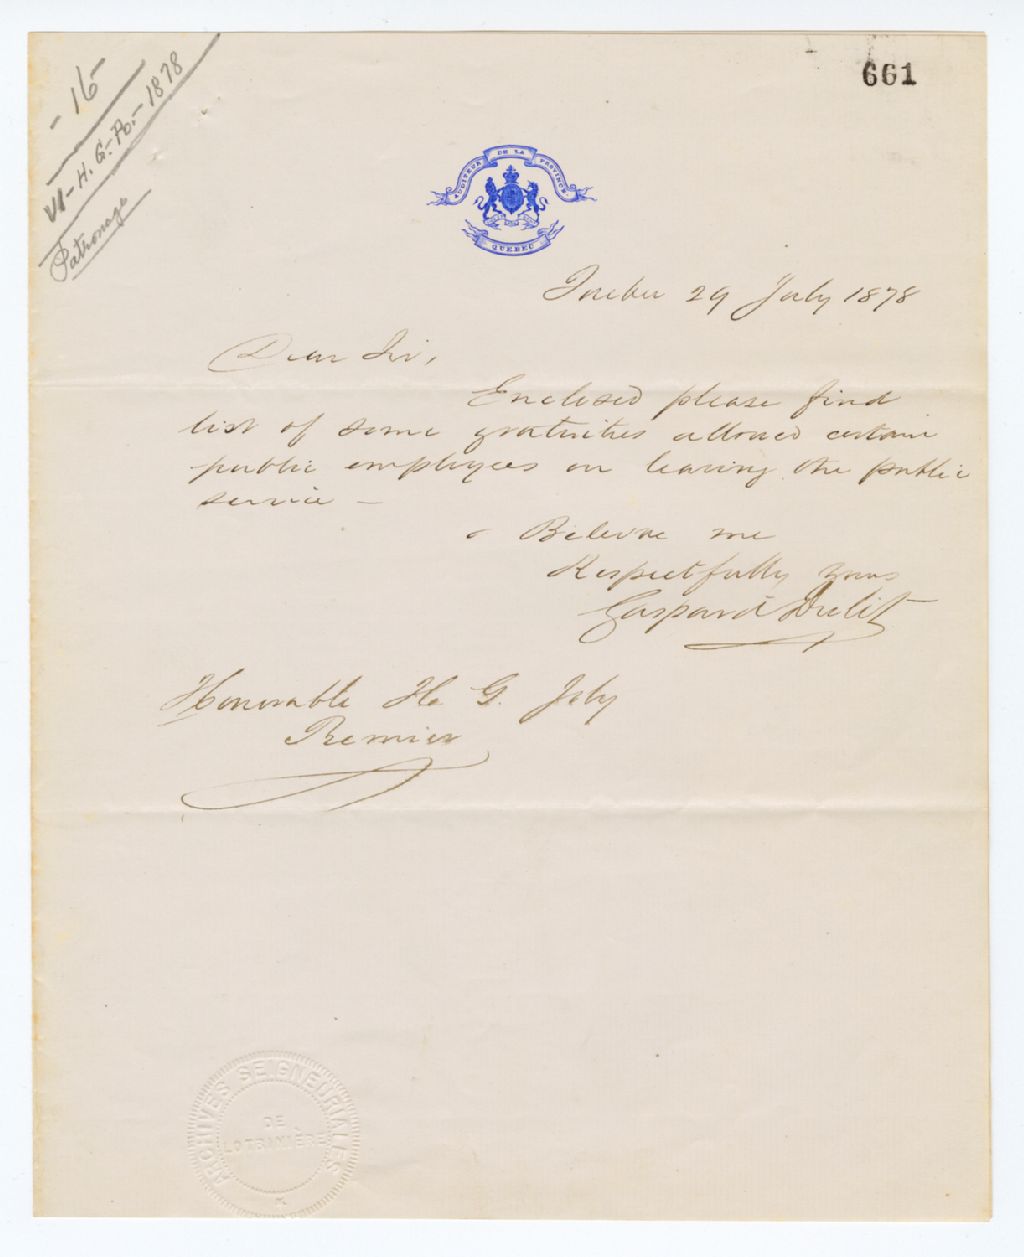 - 16 -
VI - H. G. - Po. - 1878
Patronage
661
AUDITEUR DE LA PROVINCE
QUEBEC
Quebec 29 July 1878
Dear Sir,
Enclosed please find
list of some gratuities allowed certain
public employees on leaving the public
service -
Believe me
Respectfully yours
Gaspard Drolet
Honorable H. G. Joly
Premier
ARCHIVES SEIGNEURIALES
DE
LOTBINIÈRE